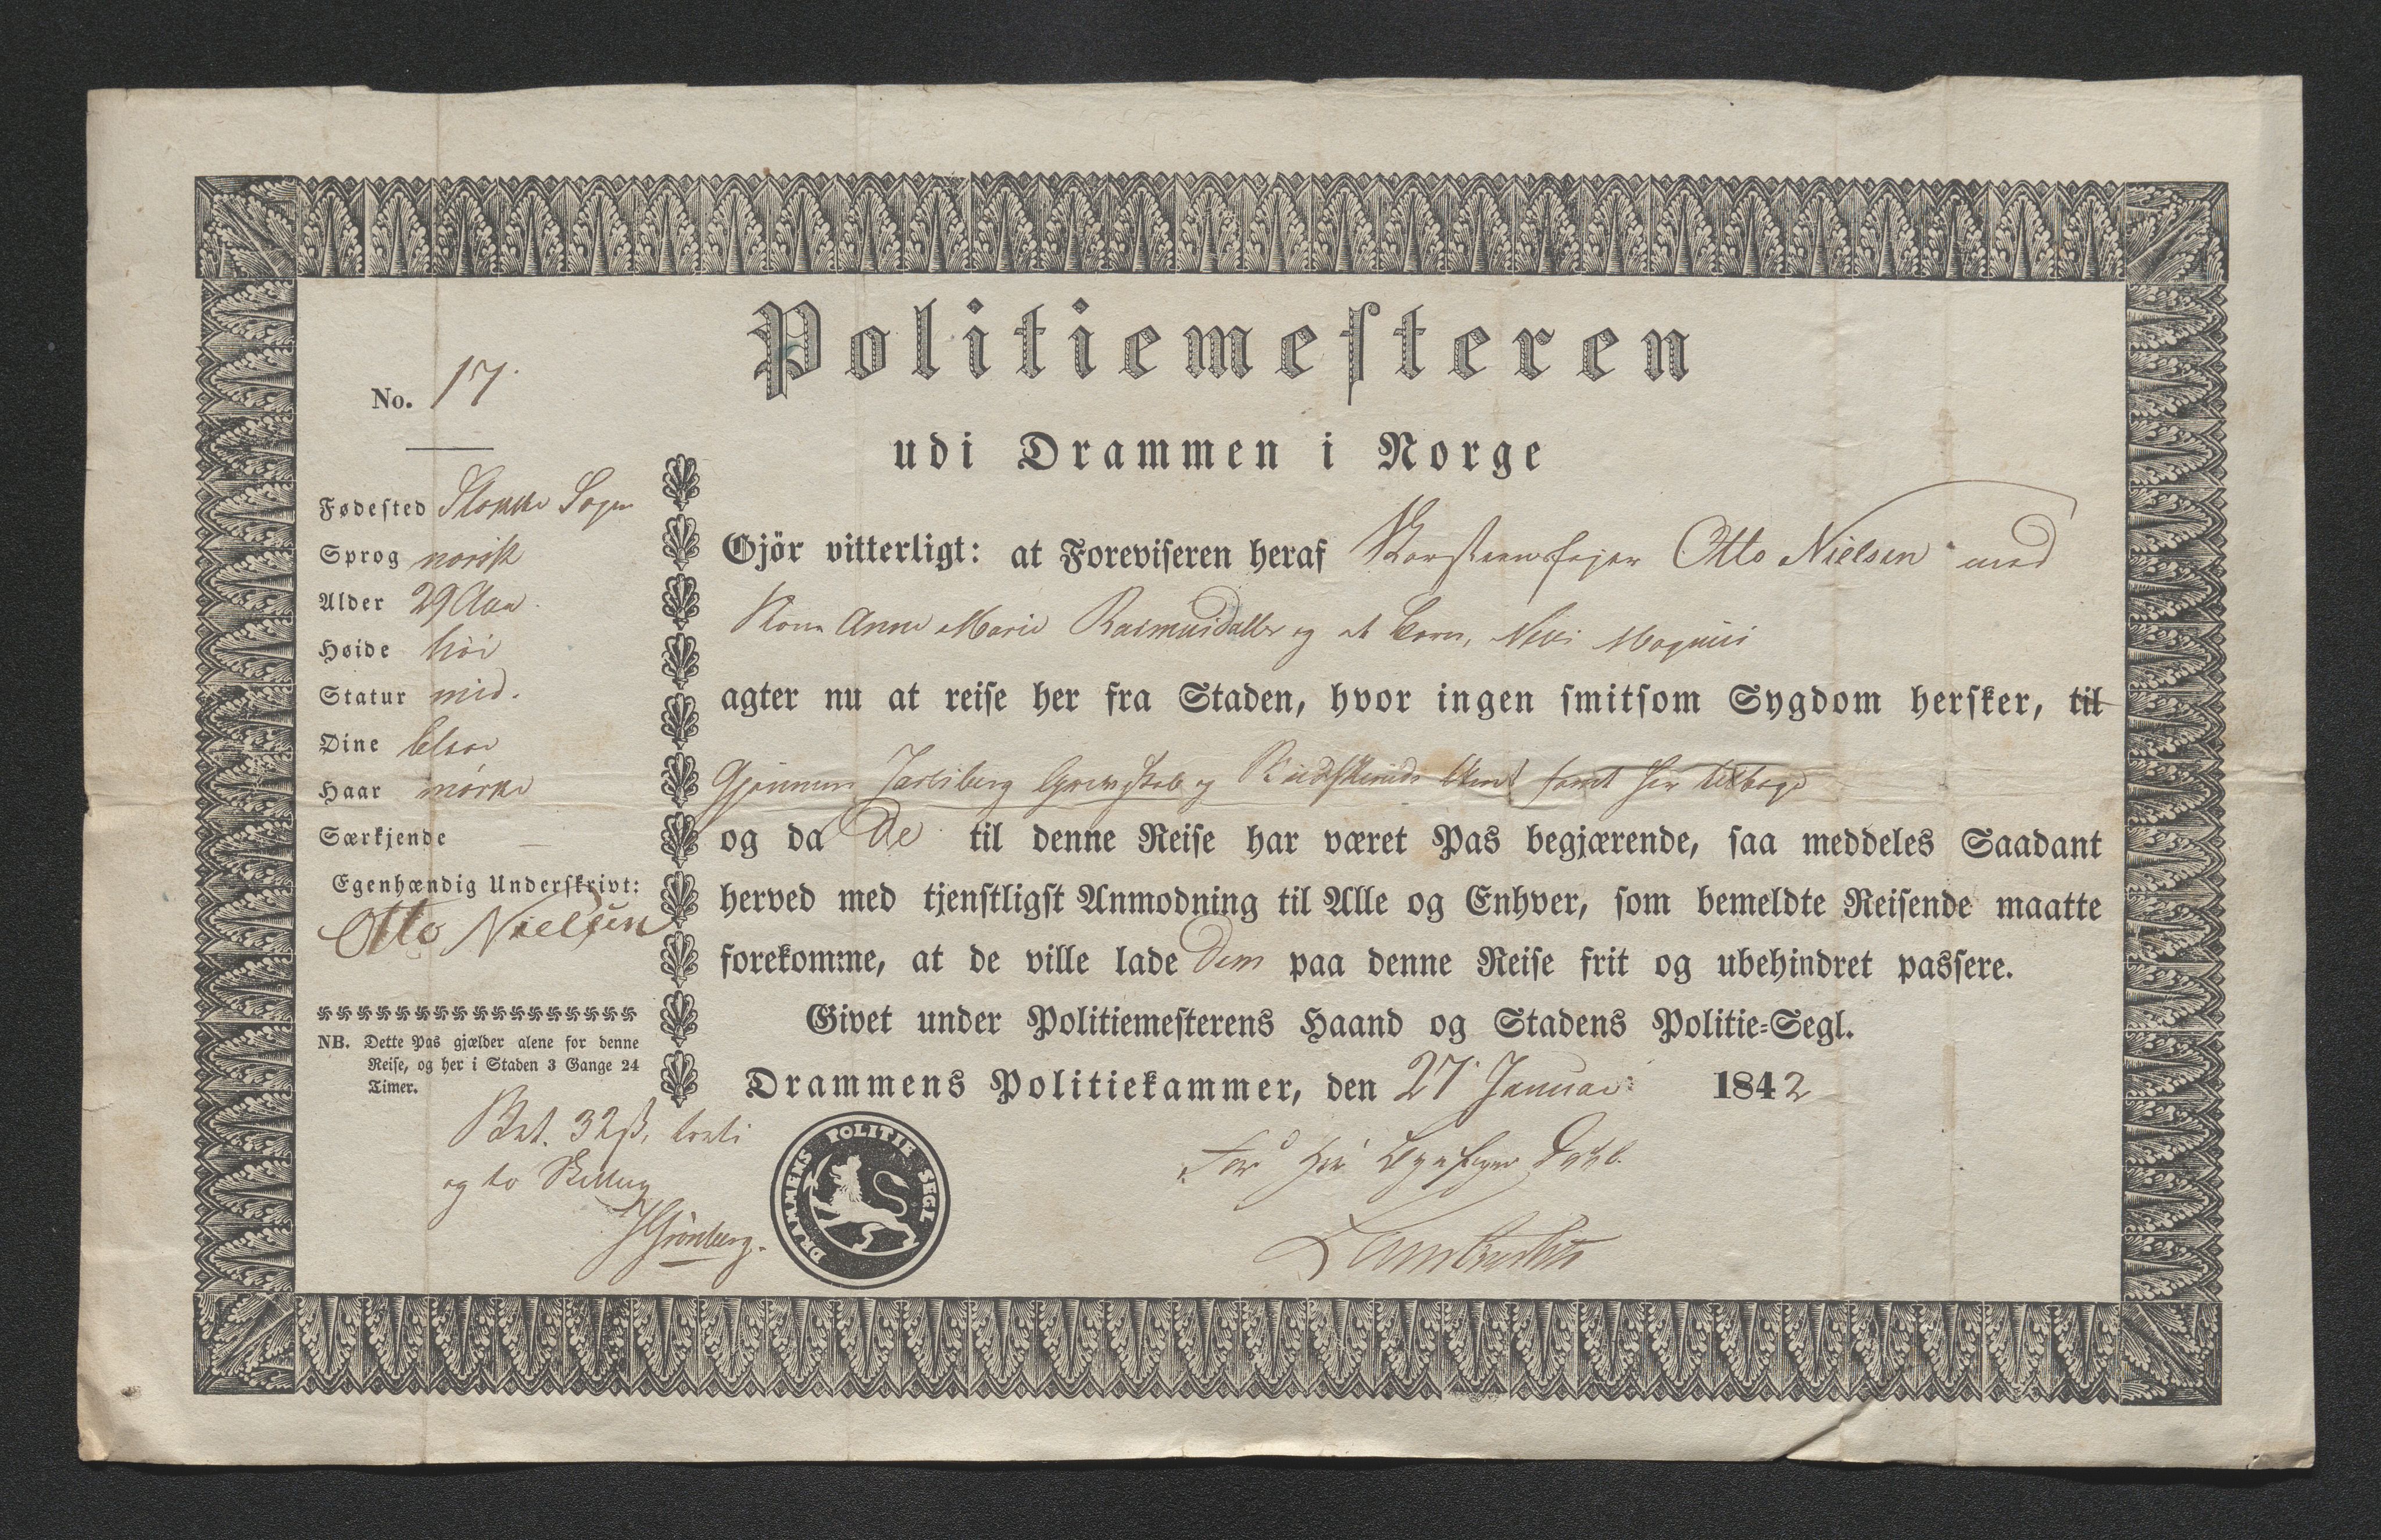 Politiemesteren
udi Drammen i Norge
No. 17.
Fødested Stokke Sogn
Sprog norsk
Alder 29 Aar.
Høide høi
Statur mid.
Øine blaae
Haar mørke
Særkjende —
Egenhændig Underskrivt:
Otto Nielsen
NB. Dette Pas gjælder alene for denne
Reise, og her i Staden 3 Gange 24
Timer.
Bet. 32 ß, treti
og to Skilling
Grönberg.
Gjör vitterligt: at Foreviseren heraf Skorsteensfejer Otto Nielsen med
Kone Anne Marie Rasmusdatter og et Barn, Niels Magnus
agter nu at reise her fra Staden, hvor ingen smitsom Sygdom hersker, til
Gjennem Jarlsberg Grevskab og Buskeruds Amt samt her tilbage
og da De til denne Reise har været Pas begjærende, saa meddeles Saadant
herved med tjenstligst Anmodning til Alle og Enhver, som bemeldte Reisende maatte
forekomme, at de ville lade Dem paa denne Reise frit og ubehindret passere.
Givet under Politiemesterens Haand og Stadens Politie-Segl.
Drammens Politiekammer, den 27 Januar 1842
DRAMMENS POLITIE SEGL
For Hr Byefoged
Lambrechts